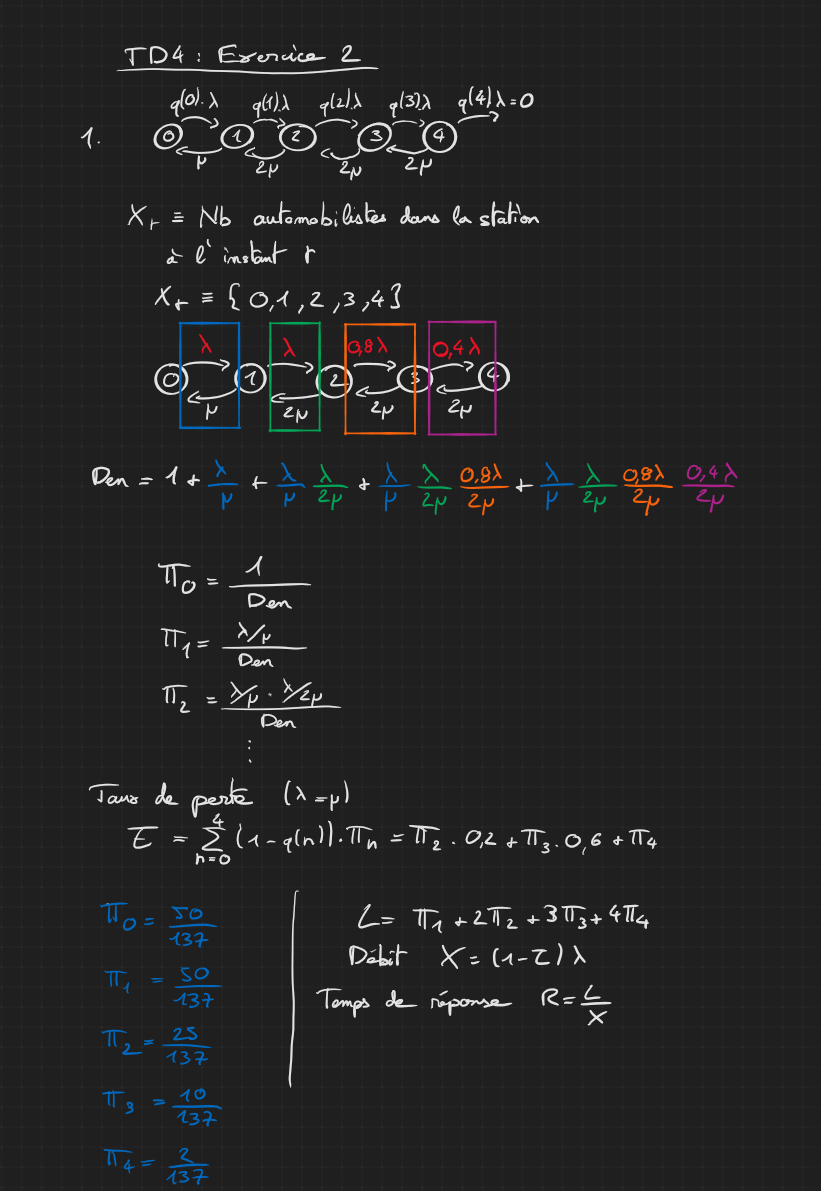 TD4 : Exercice 2
q(0).λ q(1).λ q(2).λ q(3).λ q(4).λ = 0
1. 0 1 2 3 4
μ 2μ 2μ 2μ
X_t ≡ Nb automobilistes dans la station
à l'instant t
X_t ≡ { 0,1 , 2 , 3 , 4 }
λ λ 0,8λ 0,4λ
0 1 2 3 4
μ 2μ 2μ 2μ
Den = 1 + λ/μ + λ/μ λ/2μ + λ/μ λ/2μ 0,8λ/2μ + λ/μ λ/2μ 0,8λ/2μ 0,4λ/2μ
Π_0 = 1/Den
Π_1 = (λ/μ)/Den
Π_2 = (λ/μ · λ/2μ)/Den
⋮
Taux de perte (λ = μ)
τ = Σ_{n=0}^{4} (1 - q(n)).Π_n = Π_2 . 0,2 + Π_3 . 0,6 + Π_4
Π_0 = 50/137
Π_1 = 50/137
Π_2 = 25/137
Π_3 = 10/137
Π_4 = 2/137
L = Π_1 + 2Π_2 + 3Π_3 + 4Π_4
Débit X = (1-τ) λ
Temps de réponse R = L/X